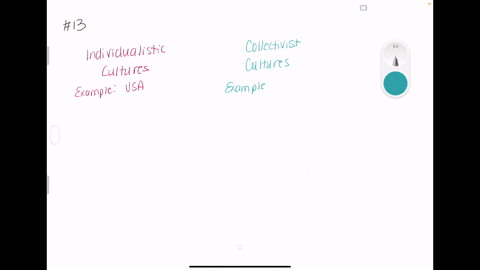 #13
Individualistic
Cultures
Example: USA
Collectivist
Cultures
Example